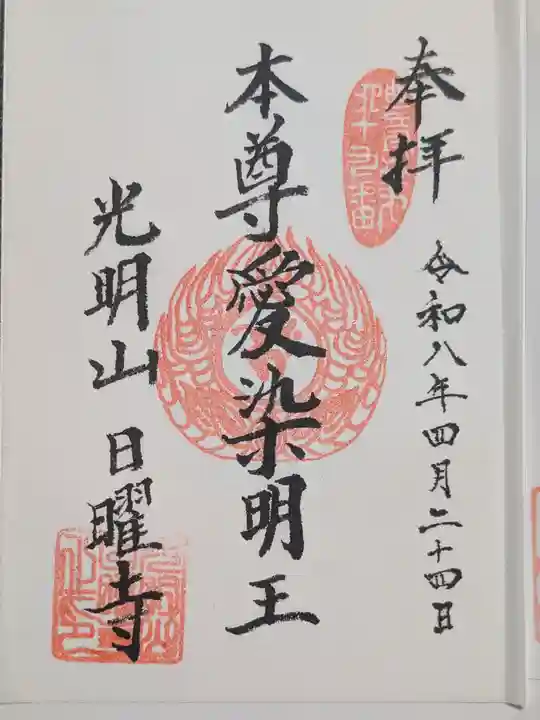 奉拝
令和八年四月二十四日
本尊愛染明王
光明山 日曜寺